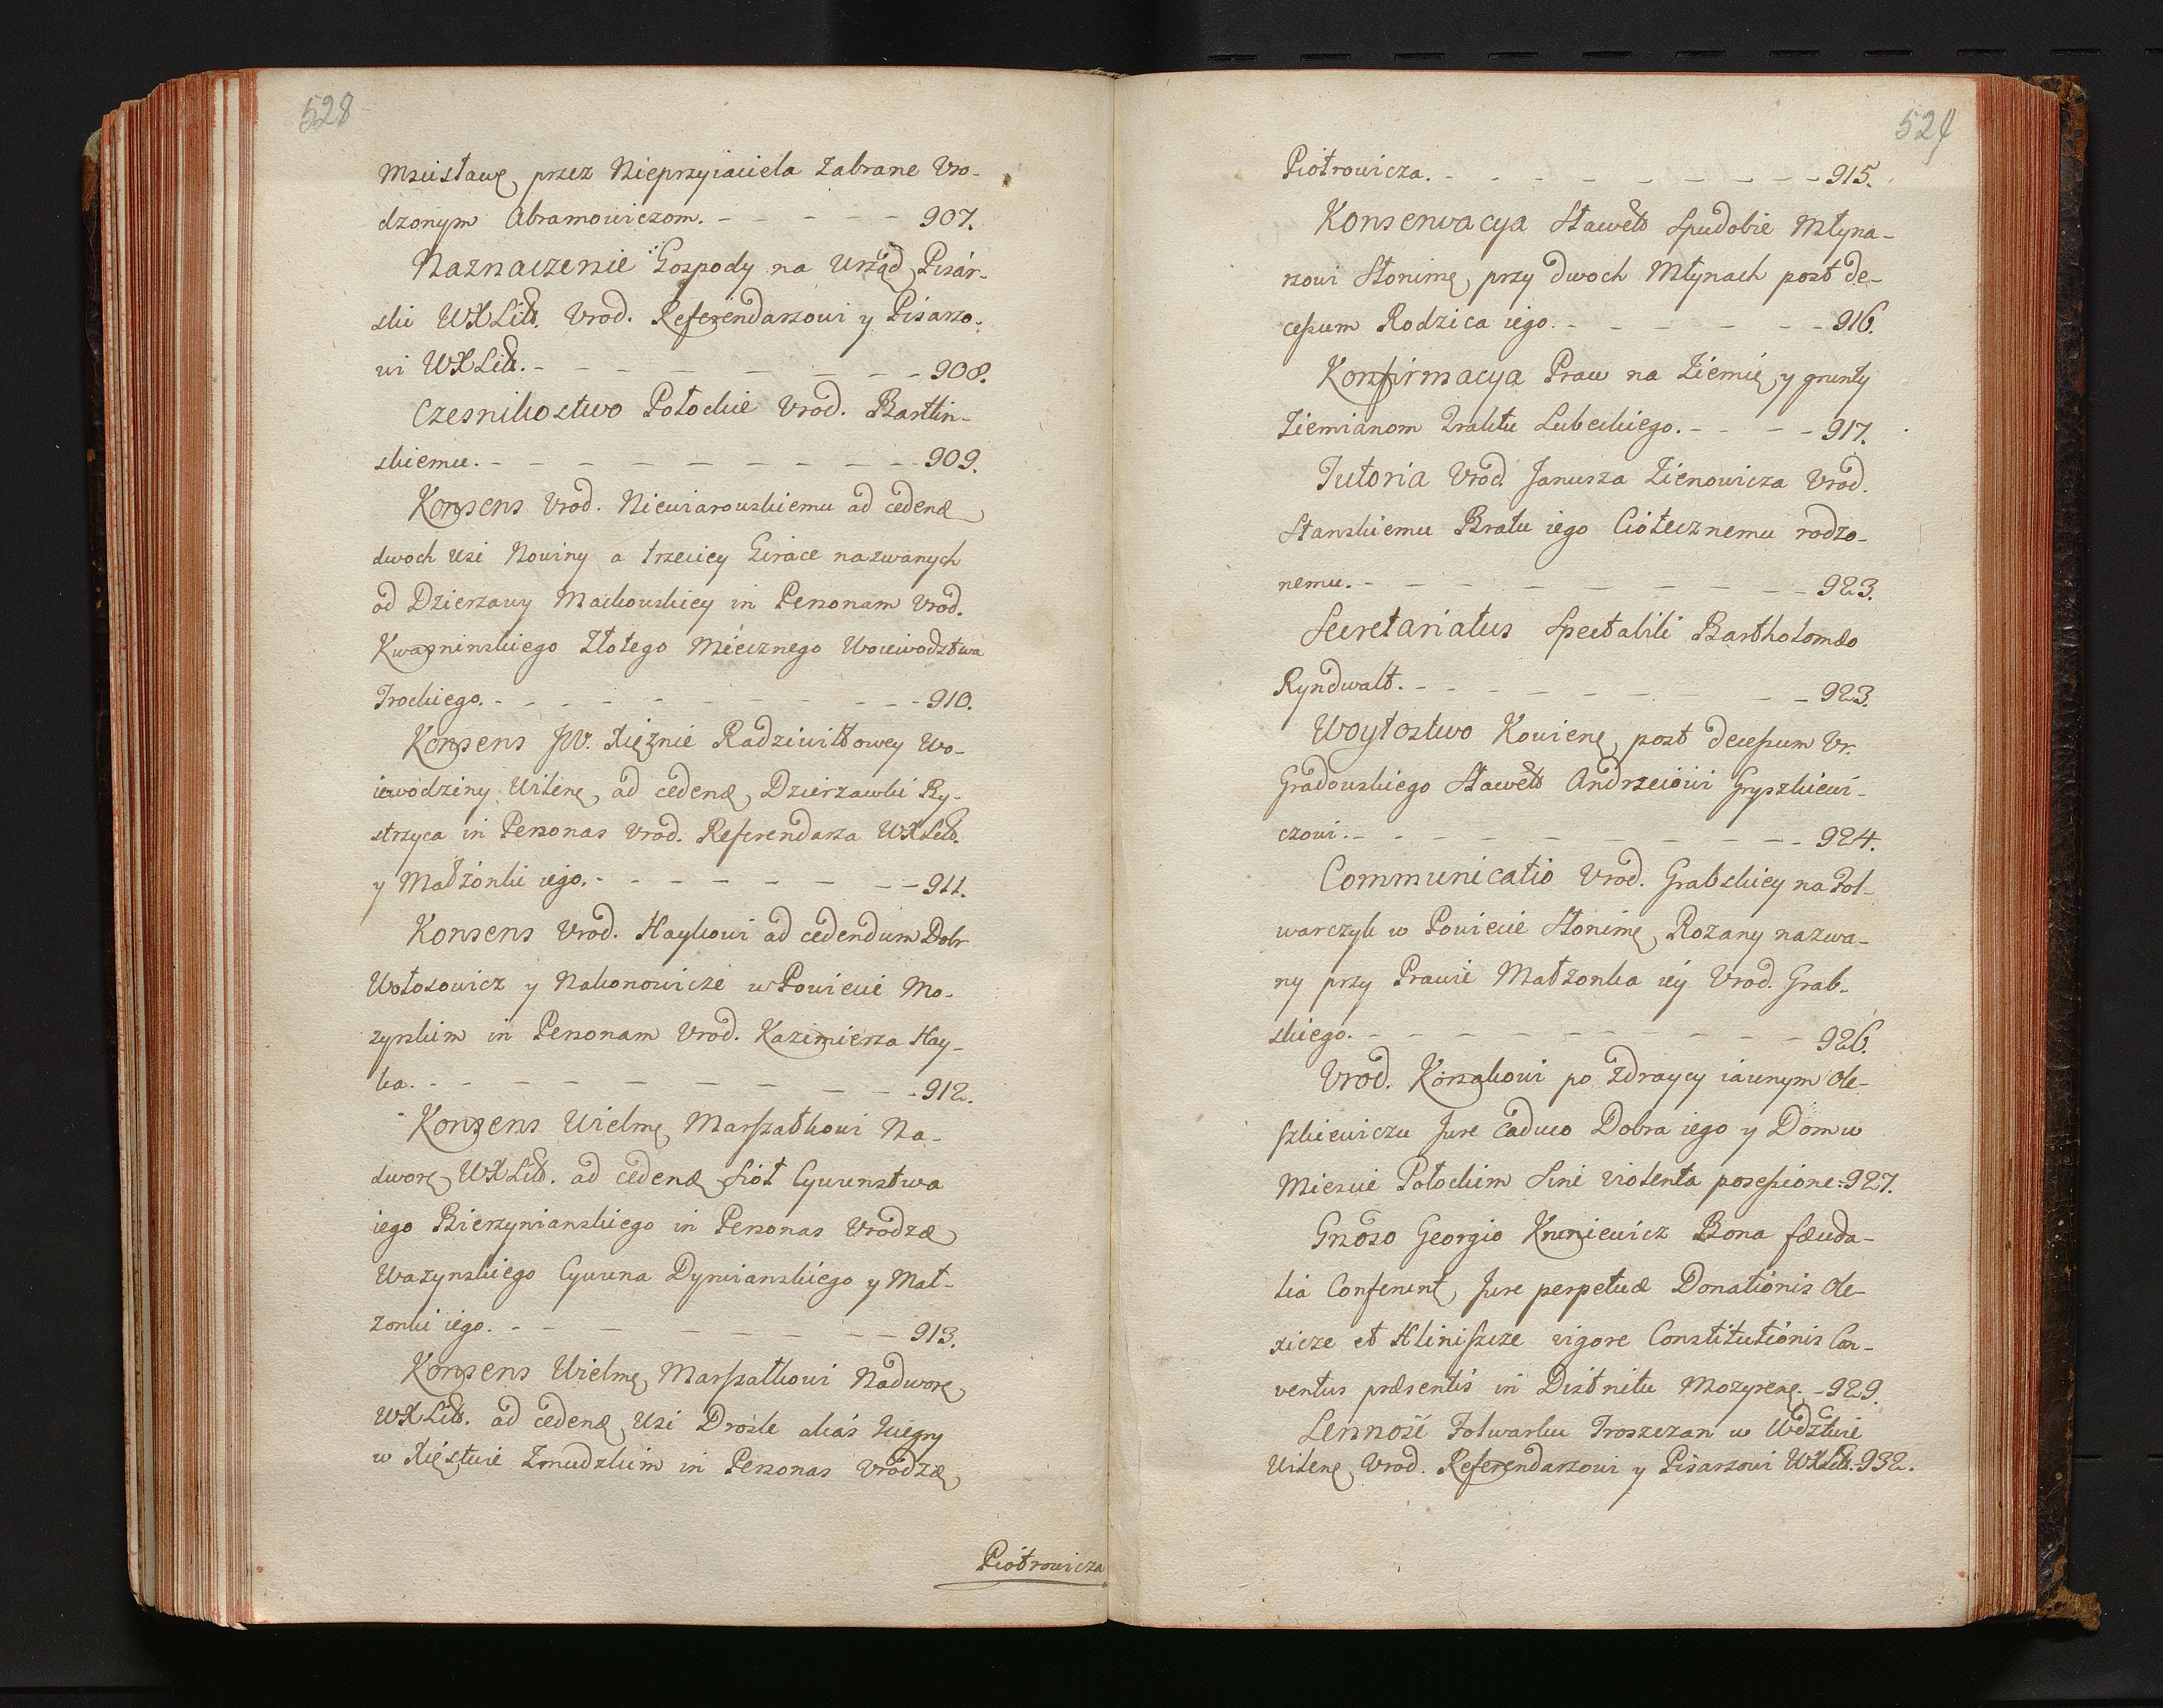 528
Mscisławę przez Nieprzyiaciela Zabrane Vro-
dzonym Abramowiczom. - - - - - 907.
Naznaczenie Gospody na Urząd Pisar-
ski WXLitt. Vrod. Referendarzowi y Pisarzo-
wi WXLitt. - - - - - - - - 908.
Czesnikostwo Połockie Vrod. Bartlin-
skiemu. - - - - - - - - - 909.
Konsens Vrod. Niewiarowskiemu ad cedenæ
dwoch Wsi Nowiny a trzeciey Girace nazwanych
od Dzierzawy Mackowskiey in Personam Vrod.
Kwapninskiego Złotego Miecznego Woiewodztwa
Trockiego. - - - - - - - - - 910.
Konsens JW. Xiężnie Radziwiłłowey Wo-
iewodziny Wilenę ad cedenæ Dzierzawki By-
strzyca in Personas Vrod. Referendarza WXLitt.
y Małżonki iego. - - - - - - - 911.
Konsens Vrod. Haykowi ad cedendum Dobr
Wołosowicz y Nakonowicze w Powiecie Mo-
zyrskim in Personam Vrod. Kazimierza Hay-
ka. - - - - - - - - - 912.
Konsens Wielmę Marszałkowi Na-
dworę WXLitt. ad cedenæ Sioł Cywunstwa
iego Bierzynianskiego in Personas Vrodzæ
Wazynskiego Cywuna Dyrwianskiego y Mał-
zonki iego. - - - - - - - 913.
Konsens Wielmę Marszałkowi Nadworę
WXLitt. ad cedenæ Wsi Drosle alias Zwegry
w Xięstwie Zmudzkim in Personas Vrodzæ
Piotrowicza
529
Piotrowicza. - - - - - - - - 915.
Konserwacya Sławett Spudobie Młyna-
rzowi Słonimę przy dwoch Młynach post de-
cessum Rodzica iego. - - - - - - 916.
Konfirmacya Praw na Ziemię y grunty
Ziemianom Traktu Lubeckiego. - - - - 917.
Tutoria Vrod. Janusza Zienowicza Vrod.
Stanskiemu Bratu iego Ciotecznemu rodzo-
nemu. - - - - - - - - - 923.
Secretariatus Spectabili Bartholomæo
Ryndwalt. - - - - - - - 923.
Woytostwo Kowienę post decessum Vr.
Gradowskiego Sławett Andrzeiowi Gryszkiewi-
czowi. - - - - - - - - - 924.
Communicatio Vrod. Grabskiey na Fol-
warczyk w Powiecie Słonimę Rozany nazwa-
ny przy Prawie Małzonka iey Vrod. Grab-
skiego. - - - - - - - - - 926.
Vrod. Korsakowi po zdraycy iawnym Ole-
szkiewiczu Jure Caduco Dobra iego y Dom w
Miescie Połockim Sini violenta possessione - 927.
Gnoso Georgio Kruniewicz Bona fœuda-
lia Conferunt Jure perpetuæ Donationis Ole-
xicze et Hliniszcze vigore Constitutionis Con-
ventus præsentis in Districtu Mozyrenę - 929.
Lennosć Folwarku Troszczan w Wdztwie
Wilenę Vrod. Referendarzowi y Pisarzowi WXLitt. 932.